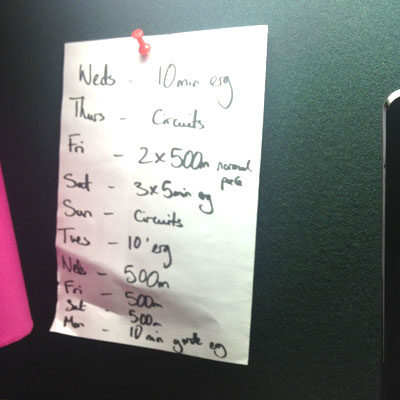 Weds - 10 min erg
Thurs - Circuits
Fri - 2 x 500m normal
pace
Sat - 3 x 5min erg
Sun - Circuits
Tues - 10' erg
Weds - 500m
Fri - 500m
Sat - 500m
Mon - 10 min erg